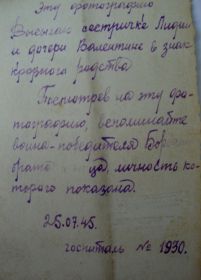 Эту фотографию
Высылаю сестричке Лидии
и дочери Валентине в знак
кровного родства
Посмотрев на эту фо-
тографию, вспоминайте
воина-победителя
брата личность ко-
торого показана.
25.07.45.
госпиталь № 1930.